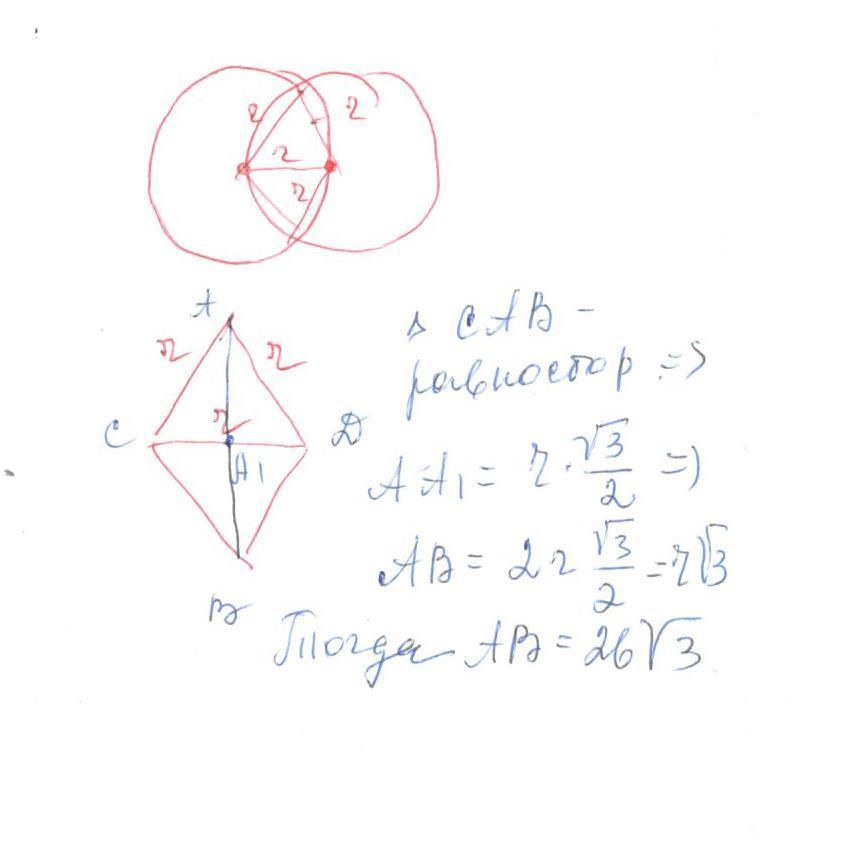 r r
r
r
A
r r
C r D
A₁
B
Δ CAB -
равностор. =>
AA₁ = r · √3/2 =>
AB = 2r √3/2 = r√3
Тогда AB = 26√3